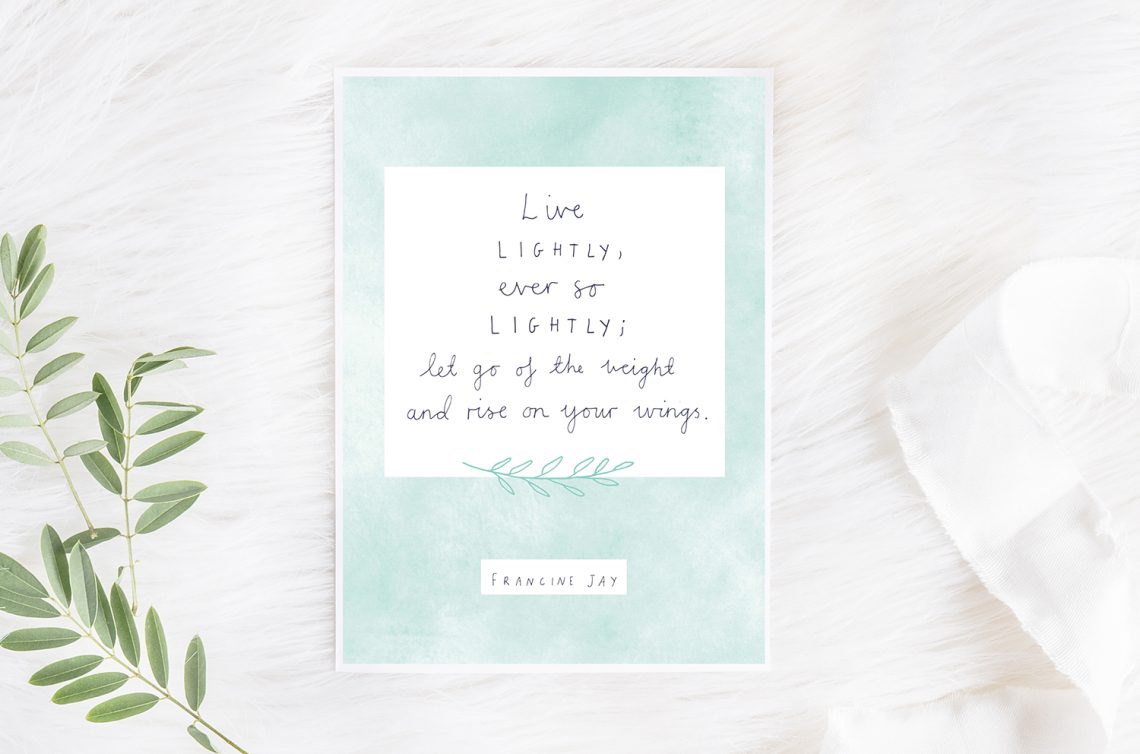 Live
LIGHTLY,
ever so
LIGHTLY;
let go of the weight
and rise on your wings.
FRANCINE JAY